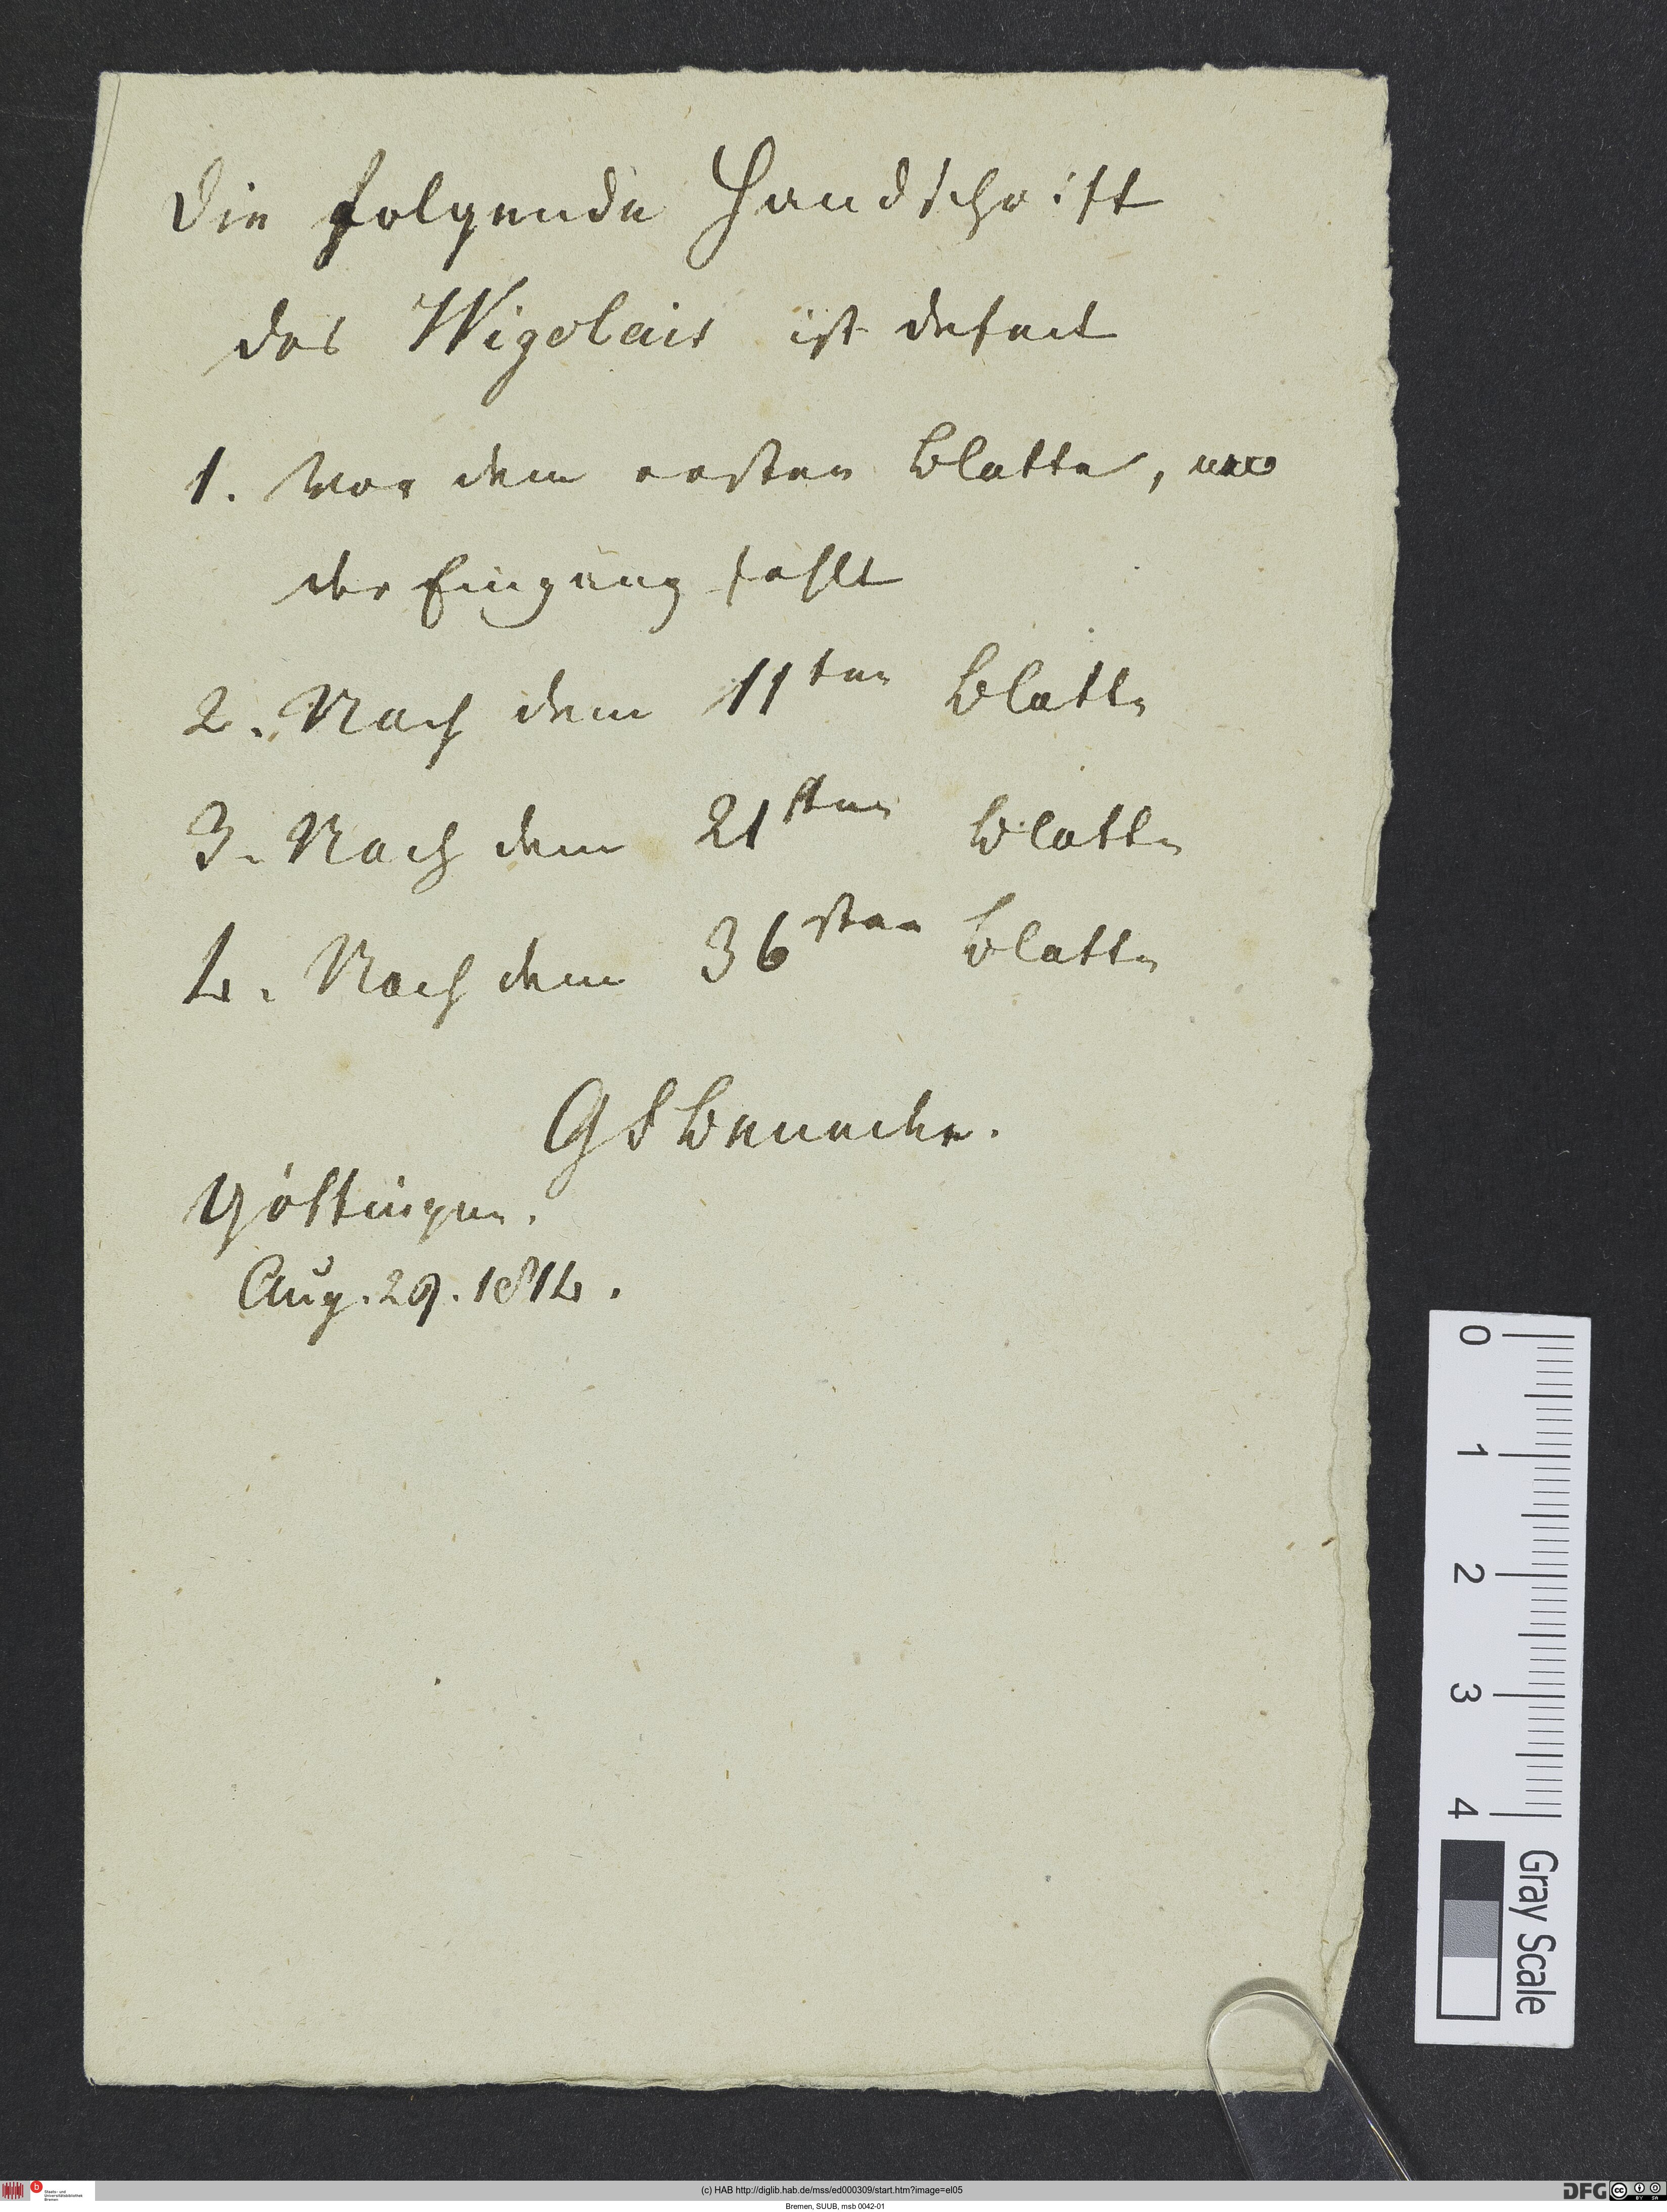 Die folgende Handschrift
des Wigolais ist defect
1. Vor dem ersten Blatte, wo
der Eingang fehlt
2. Nach dem 11ten Blatte
3. Nach dem 21sten Blatte
4. Nach dem 36sten Blatte
GF Benecke.
Göttingen.
Aug. 29. 1814.
0
1
2
3
4
Gray Scale
(c) HAB http://diglib.hab.de/mss/ed000309/start.htm?image=el05
Bremen, SUUB, msb 0042-01
Staats- und
Universitätsbibliothek
Bremen
DFG
CC BY SA